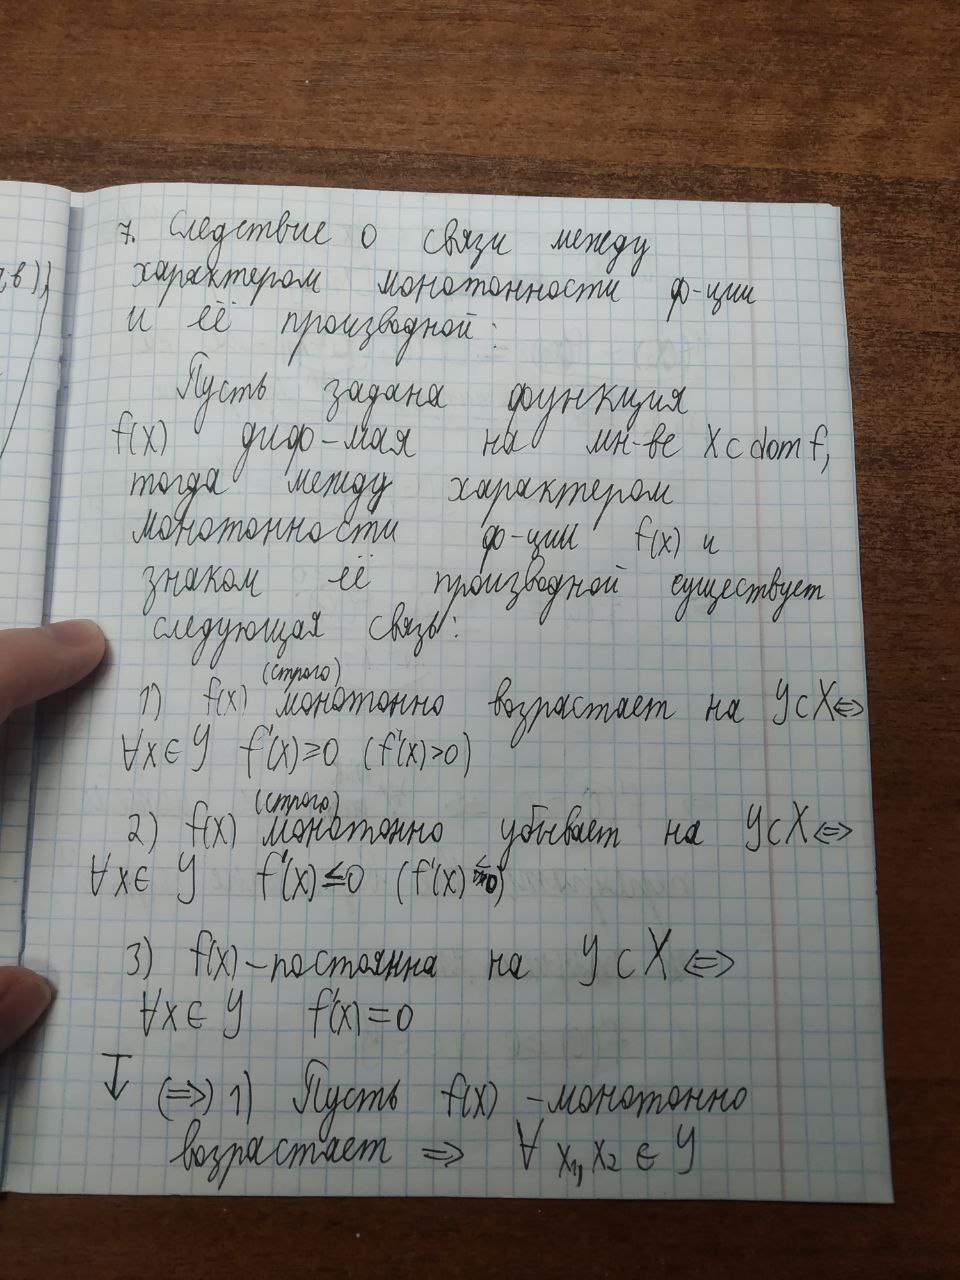 ,в))
7. Следствие о связи между
характером монотонности ф-ции
и её производной:
Пусть задана функция
f(x) диф-мая на мн-ве X⊂dom f,
тогда между характером
монотонности ф-ции f(x) и
знаком её производной существует
следующая связь:
(строго)
1) f(x) монотонно возрастает на Y⊂X⇔
∀x∈Y f'(x)≥0 (f'(x)>0)
(строго)
2) f(x) монотонно убывает на Y⊂X⇔
∀x∈Y f'(x)≤0 (f'(x)<0)
3) f(x) – постоянна на Y⊂X⇔
∀x∈Y f'(x)=0
↓ (⇒) 1) Пусть f(x) – монотонно
возрастает ⇒ ∀ x₁, x₂ ∈ Y